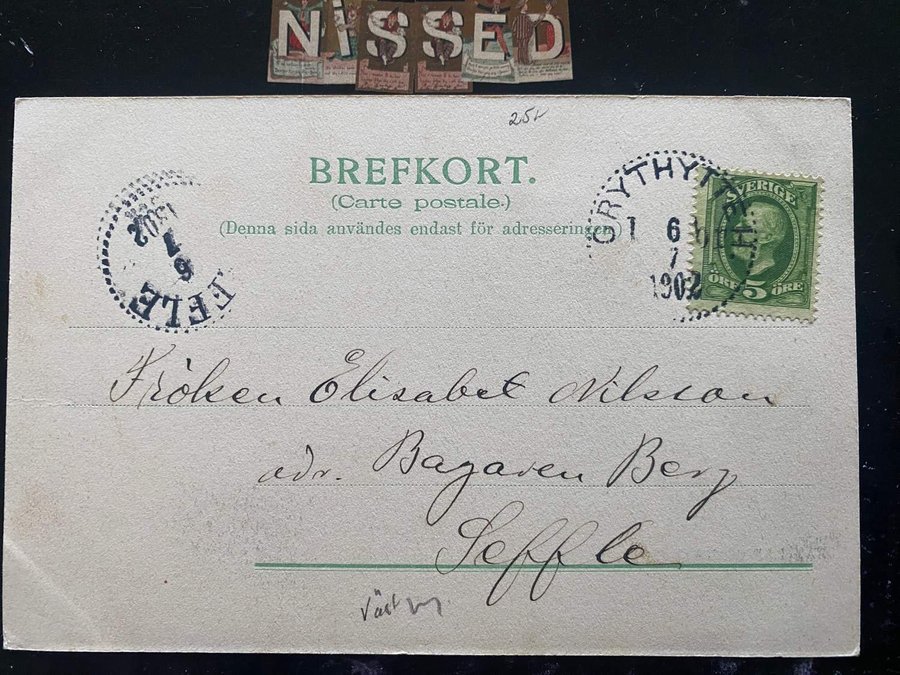 NiSSED
25kr
BREFKORT.
(Carte postale.)
(Denna sida användes endast för adresseringen)
GRYTHYTTEH
6
7
1902
SVERIGE
ÖRE 5 ÖRE
EFFLE
6
7
1902
Fröken Elisabet Nilsson
adr. Bagaren Berg
Seffle